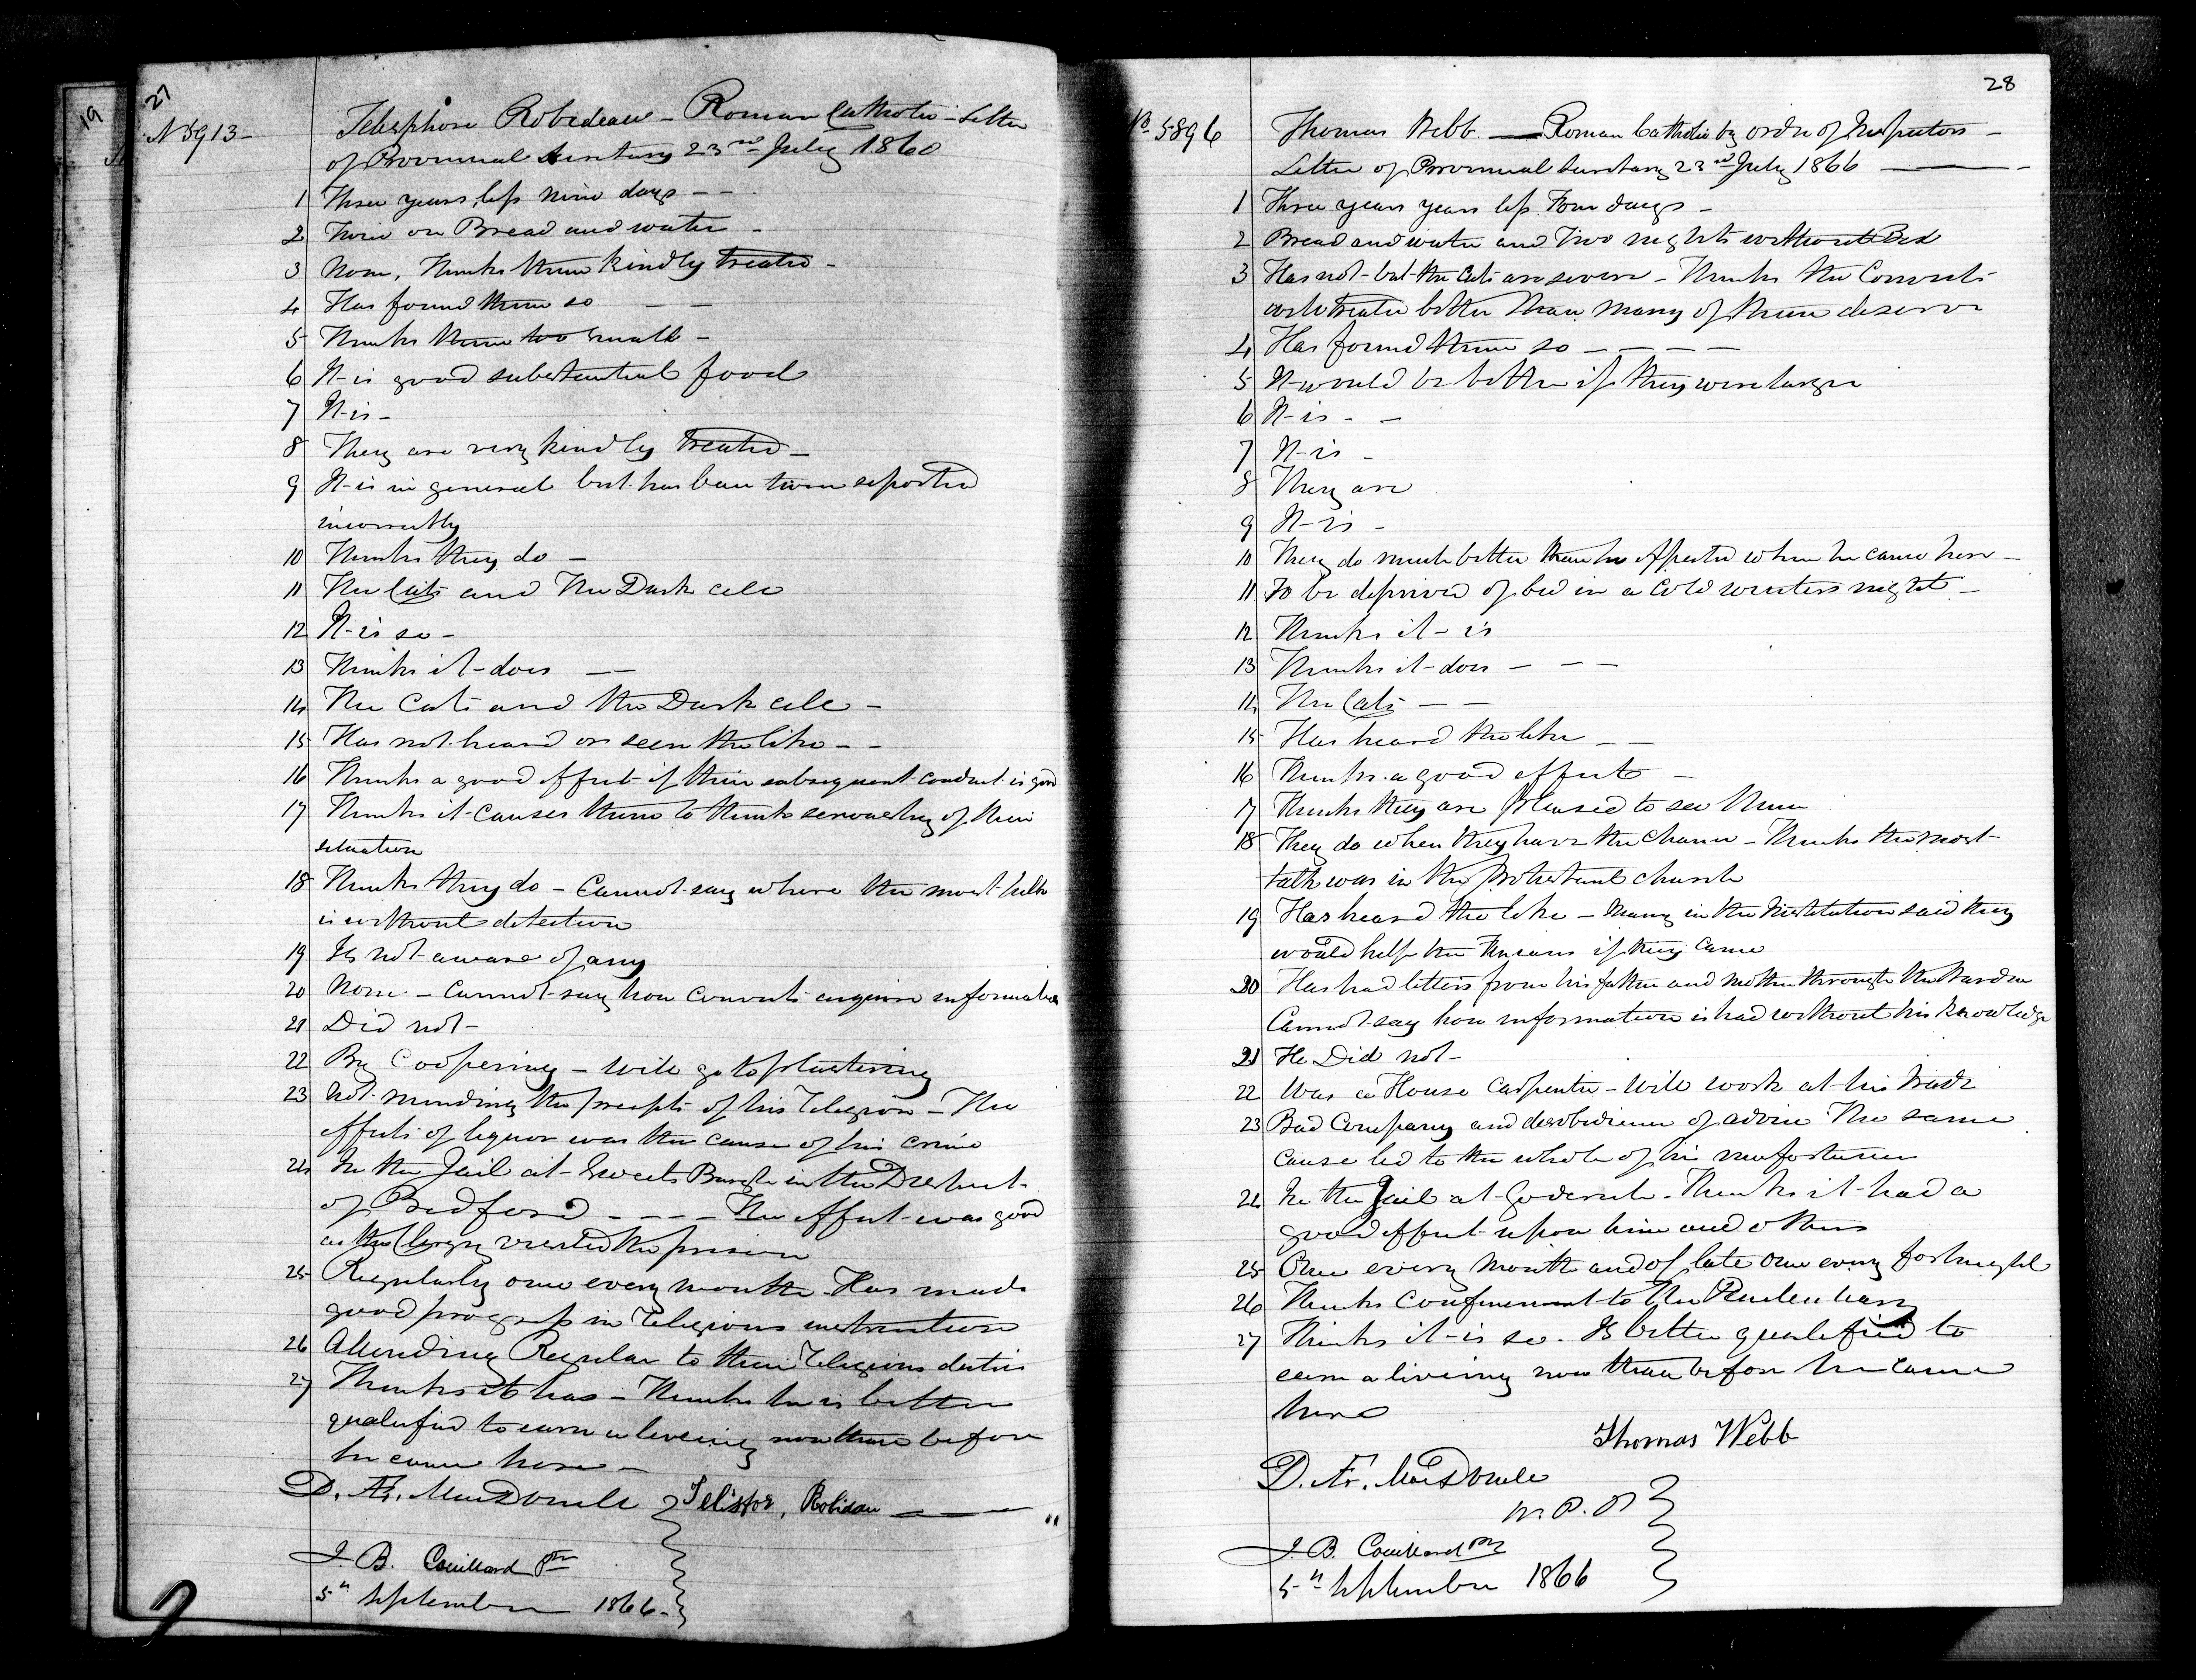 19
27
N 5913-
Telesphore Robedeau - Roman Catholic - Letter
of Provincial Secretary 23rd July 1860
1 Three years, less nine days - -
2 Twice on Bread and water -
3 None, Thinks them kindly treated -
4 Has found them so - -
5 Thinks them too small -
6 It is good substantial food
7 It is -
8 They are very kindly treated -
9 It is in general but has been twice reported
incorrectly
10 Thinks they do -
11 The Cats and The Dark cell
12 It is so -
13 Thinks it does -
14 The Cats and the Dark cell -
15 Has not heard or seen the like - -
16 Thinks a good effect if their subsequent conduct is good
17 Thinks it causes them to think seriously of their
situation
18 Thinks they do - Cannot say where the most talk
is without detection
19 Is not aware of any
20 None - Cannot say how Convicts acquire information
21 Did not -
22 By Coopering - will go to plastering
23 Not minding the precepts of his Religion - The
effects of liquor was the cause of his crime
24 In the Jail at Sweets Burgh in the District
of Bedford - - - - The effect was good
as the Clergy visited the prison
25 Regularly once every month. Has made
good progress in Religious instruction
26 Attending Regular to their Religious duties
27 Thinks it has - Thinks he is better
qualified to earn a liveing now than before
he came here -
D. Æ. MacDonell Telisfor, Robidau
J. B. Couillard Ptre
5th September 1866.
28
No 5896
Thomas Webb. - Roman Catholic by order of Inspectors -
Letter of Provincial Secretary 23rd July 1866
1 Three years years less Four days -
2 Bread and water and Two nights without Bed
3 Has not - but the Cats are severe - Thinks the Convicts
are treated better than many of them deserve
4 Has found them so - - - -
5 It would be better if they were larger
6 It is - -
7 It is -
8 They are
9 It is -
10 They do much better than he expected when he came here -
11 To be deprived of bed in a Cold winters night -
12 Thinks it is
13 Thinks it does - - -
14 The Cats - -
15 Has heard the like - -
16 Thinks a good effect -
17 Thinks they are pleased to see them
18 They do when they have the Chance - Thinks the most
talk was in the Protestant church
19 Has heard the like - Many in the Institution said they
would help the Fenians if they came
20 Has had letters from his father and mother through the Warden
Cannot say how information is had without his knowledge
21 He Did not -
22 Was a House Carpenter - Will work at his trade
23 Bad Company and disobedience of advice The same
cause led to the whole of his misfortunes
24 In the Jail at Goderich. Thinks it had a
good effect upon him and others
25 Once every month and of late once every fortnight
26 Thinks confinement to the Penitentiary
27 Thinks it is so. Is better qualified to
earn a liveing now than before he came
here
Thomas Webb
D. Æ. MacDonell
W. P. P.
J. B. Couillard Ptre
5th September 1866